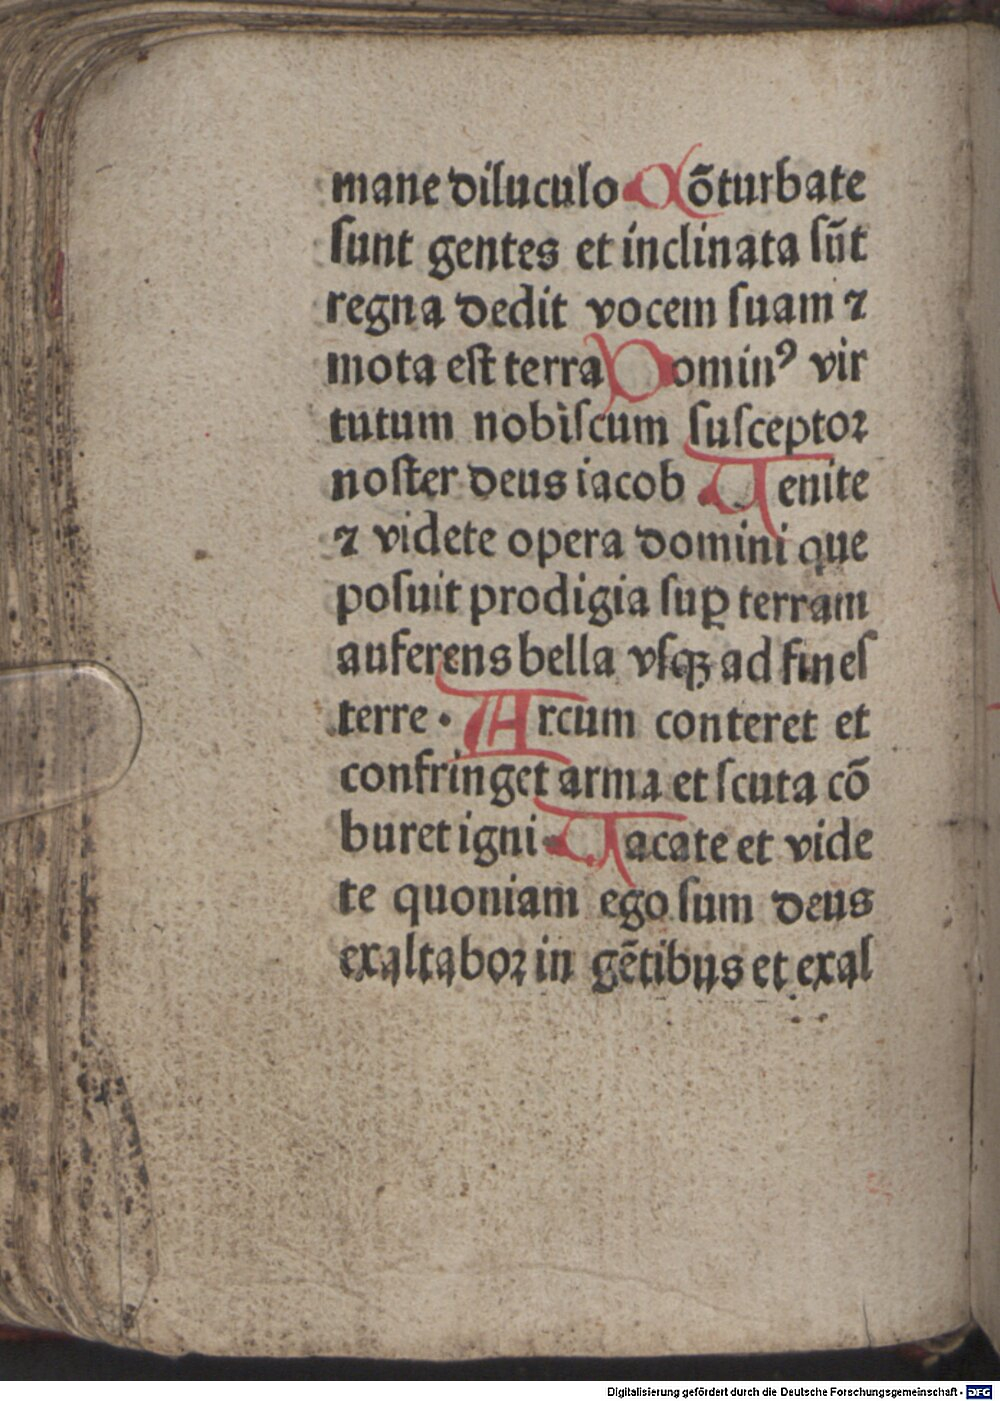 mane diluculo Cōturbate
ſunt gentes et inclinata ſūt
regna dedit vocem ſuam ⁊
mota eſt terra Dominꝰ vir
tutum nobiſcum ſuſceptoꝛ
noſter deus iacob Uenite
⁊ videte opera domini que
poſuit prodigia ſuꝑ terram
auferens bella vſqꝫ ad fineſ
terre · Arcum conteret et
confringet arma et ſcuta cō
buret igni Uacate et vide
te quoniam ego ſum deus
exaltaboꝛ in gētibus et exal
Digitalisierung gefördert durch die Deutsche Forschungsgemeinschaft - DFG